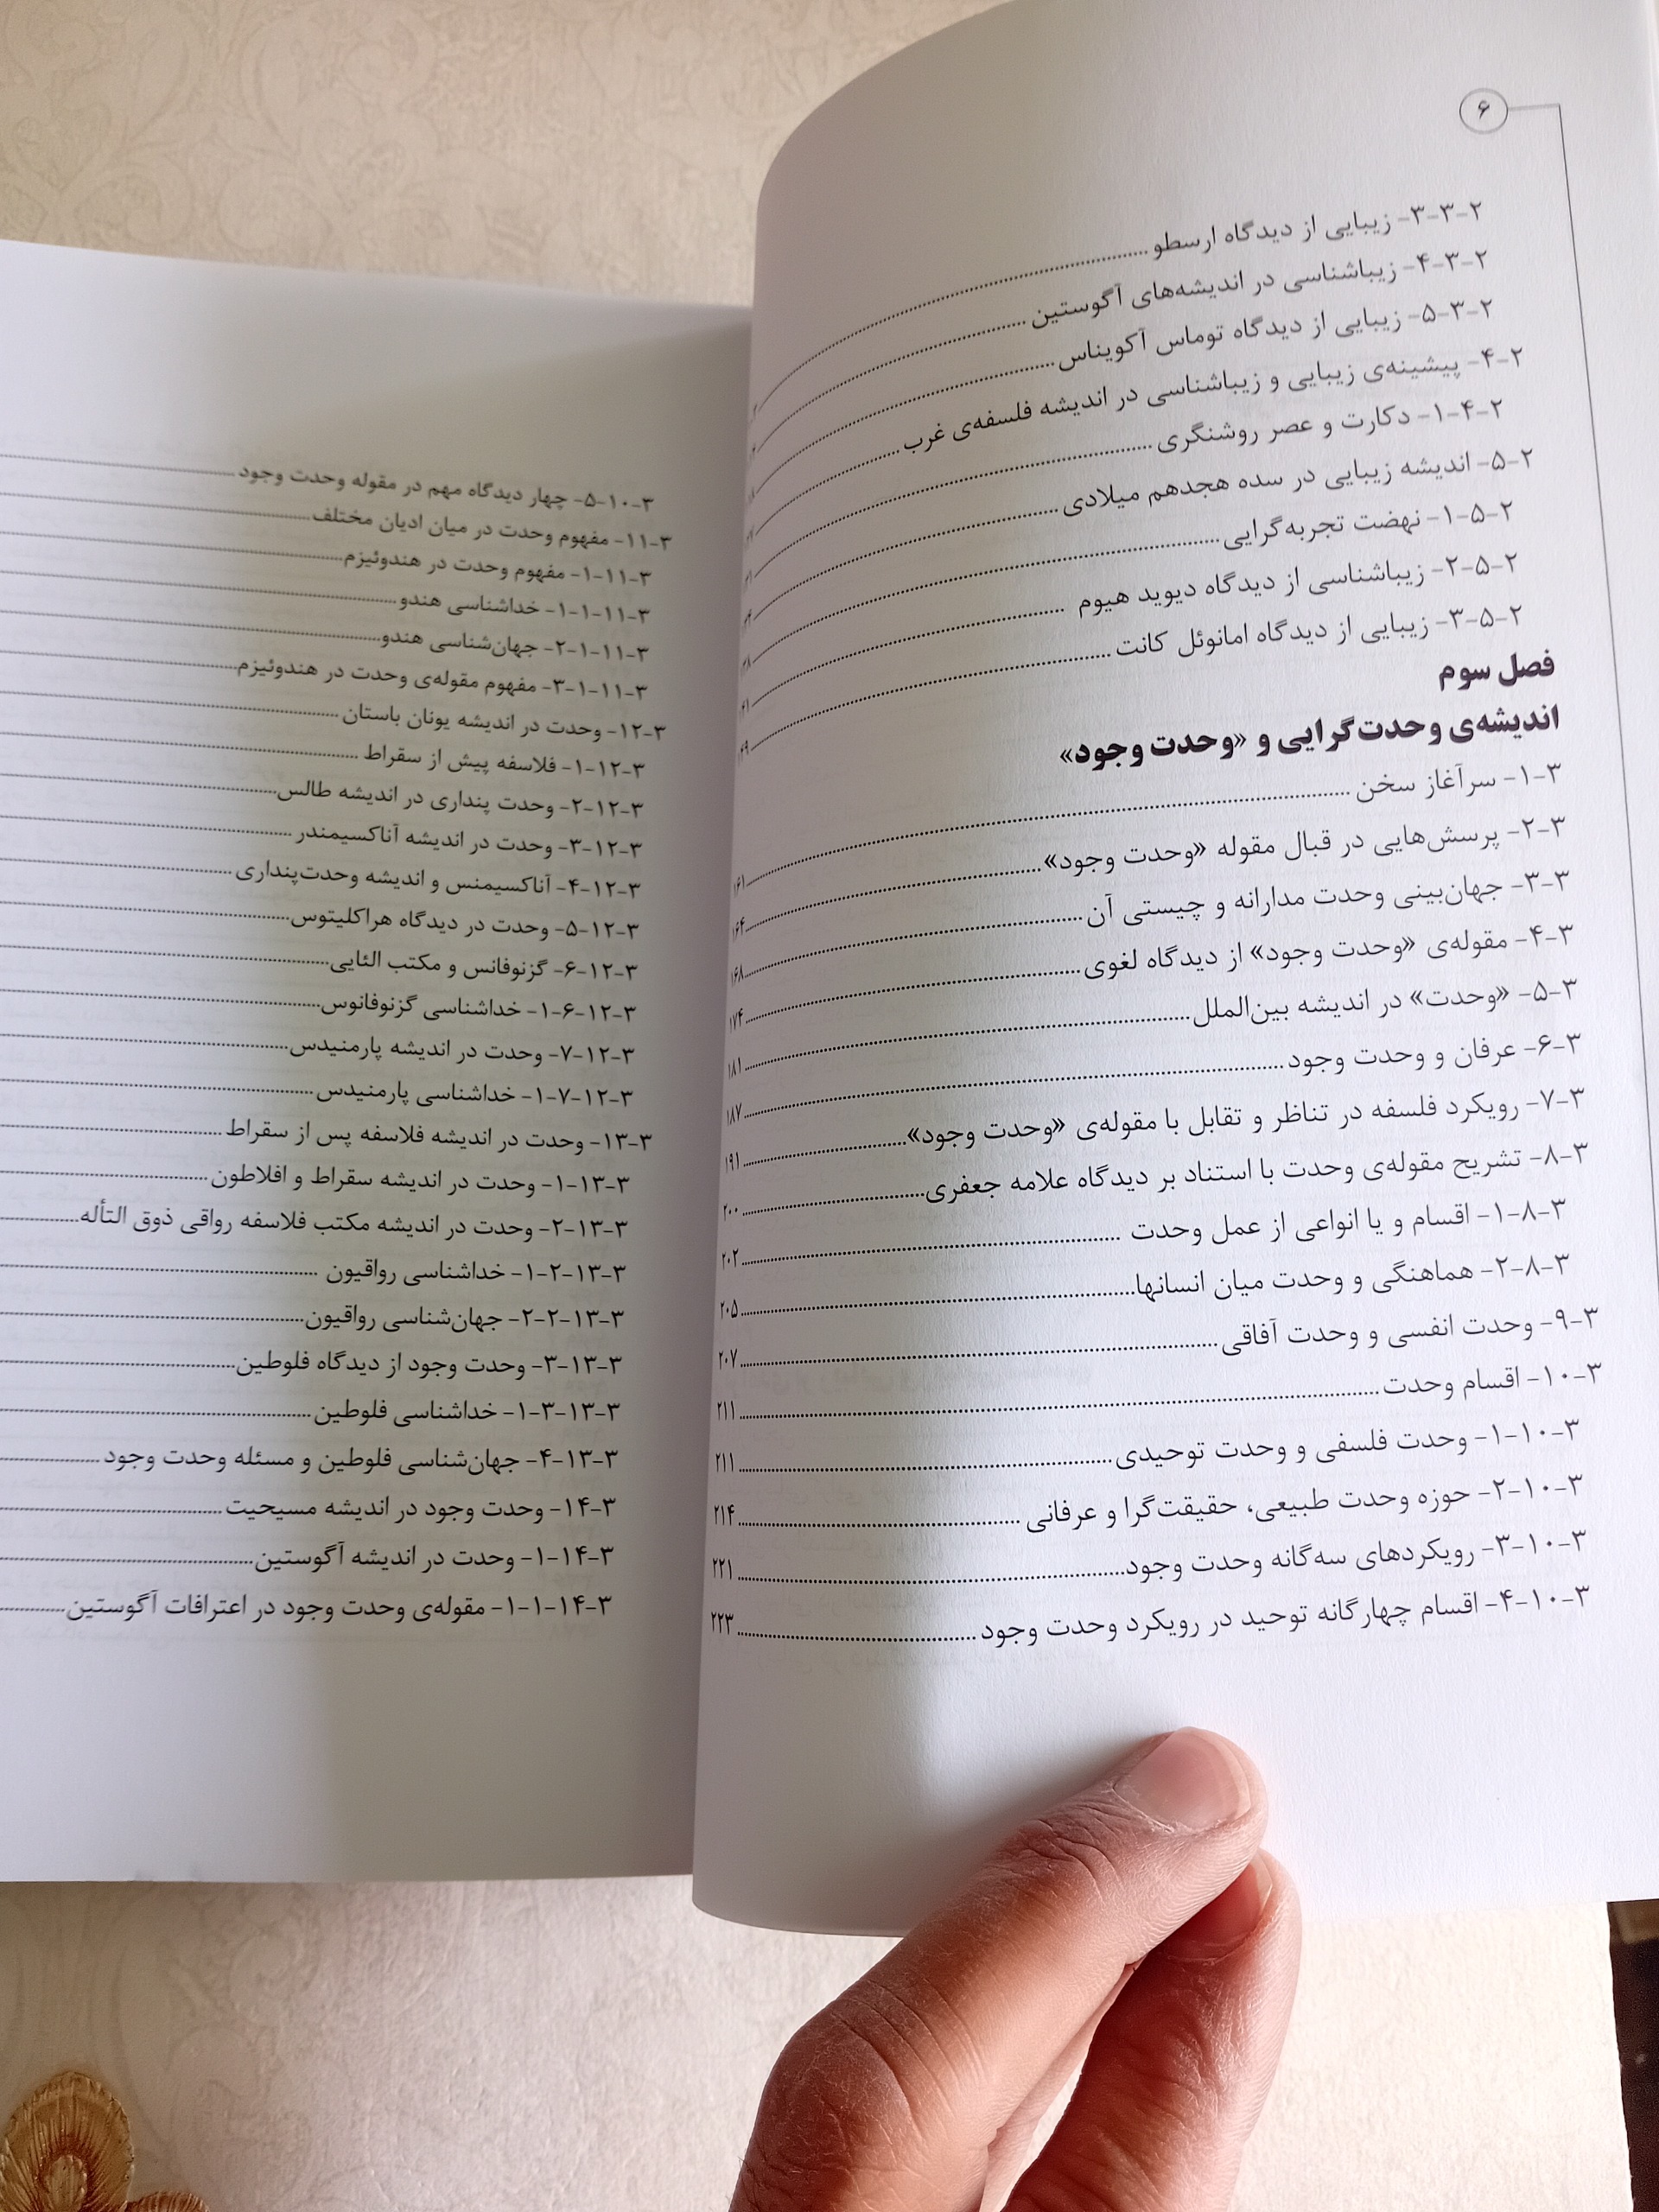 ۶
۲-۳-۳- زیبایی از دیدگاه ارسطو
۲-۳-۴- زیباشناسی در اندیشه‌های آگوستین
۲-۳-۵- زیبایی از دیدگاه توماس آکویناس
۲-۴- پیشینه‌ی زیبایی و زیباشناسی در اندیشه فلسفه‌ی غرب
۲-۴-۱- دکارت و عصر روشنگری
۲-۵- اندیشه زیبایی در سده هجدهم میلادی
۲-۵-۱- نهضت تجربه‌گرایی
۲-۵-۲- زیباشناسی از دیدگاه دیوید هیوم
۲-۵-۳- زیبایی از دیدگاه امانوئل کانت
فصل سوم
اندیشه‌ی وحدت‌گرایی و «وحدت وجود»
۳-۱- سرآغاز سخن ۱۶۱
۳-۲- پرسش‌هایی در قبال مقوله «وحدت وجود» ۱۶۴
۳-۳- جهان‌بینی وحدت مدارانه و چیستی آن ۱۶۸
۳-۴- مقوله‌ی «وحدت وجود» از دیدگاه لغوی ۱۷۴
۳-۵- «وحدت» در اندیشه بین‌الملل ۱۸۱
۳-۶- عرفان و وحدت وجود ۱۸۷
۳-۷- رویکرد فلسفه در تناظر و تقابل با مقوله‌ی «وحدت وجود» ۱۹۱
۳-۸- تشریح مقوله‌ی وحدت با استناد بر دیدگاه علامه جعفری ۲۰۰
۳-۸-۱- اقسام و یا انواعی از عمل وحدت ۲۰۲
۳-۸-۲- هماهنگی و وحدت میان انسانها ۲۰۵
۳-۹- وحدت انفسی و وحدت آفاقی ۲۰۷
۳-۱۰- اقسام وحدت ۲۱۱
۳-۱۰-۱- وحدت فلسفی و وحدت توحیدی ۲۱۱
۳-۱۰-۲- حوزه وحدت طبیعی، حقیقت‌گرا و عرفانی ۲۱۴
۳-۱۰-۳- رویکردهای سه‌گانه وحدت وجود ۲۲۱
۳-۱۰-۴- اقسام چهارگانه توحید در رویکرد وحدت وجود ۲۲۳
۳-۱۰-۵- چهار دیدگاه مهم در مقوله وحدت وجود
۳-۱۱- مفهوم وحدت در میان ادیان مختلف
۳-۱۱-۱- مفهوم وحدت در هندوئیزم
۳-۱۱-۱-۱- خداشناسی هندو
۳-۱۱-۱-۲- جهان‌شناسی هندو
۳-۱۱-۱-۳- مفهوم مقوله‌ی وحدت در هندوئیزم
۳-۱۲- وحدت در اندیشه یونان باستان
۳-۱۲-۱- فلاسفه پیش از سقراط
۳-۱۲-۲- وحدت پنداری در اندیشه طالس
۳-۱۲-۳- وحدت در اندیشه آناکسیمندر
۳-۱۲-۴- آناکسیمنس و اندیشه وحدت‌پنداری
۳-۱۲-۵- وحدت در دیدگاه هراکلیتوس
۳-۱۲-۶- گزنوفانس و مکتب الئایی
۳-۱۲-۶-۱- خداشناسی گزنوفانوس
۳-۱۲-۷- وحدت در اندیشه پارمنیدس
۳-۱۲-۷-۱- خداشناسی پارمنیدس
۳-۱۳- وحدت در اندیشه فلاسفه پس از سقراط
۳-۱۳-۱- وحدت در اندیشه سقراط و افلاطون
۳-۱۳-۲- وحدت در اندیشه مکتب فلاسفه رواقی ذوق التأله
۳-۱۳-۲-۱- خداشناسی رواقیون
۳-۱۳-۲-۲- جهان‌شناسی رواقیون
۳-۱۳-۳- وحدت وجود از دیدگاه فلوطین
۳-۱۳-۳-۱- خداشناسی فلوطین
۳-۱۳-۴- جهان‌شناسی فلوطین و مسئله وحدت وجود
۳-۱۴- وحدت وجود در اندیشه مسیحیت
۳-۱۴-۱- وحدت در اندیشه آگوستین
۳-۱۴-۱-۱- مقوله‌ی وحدت وجود در اعترافات آگوستین